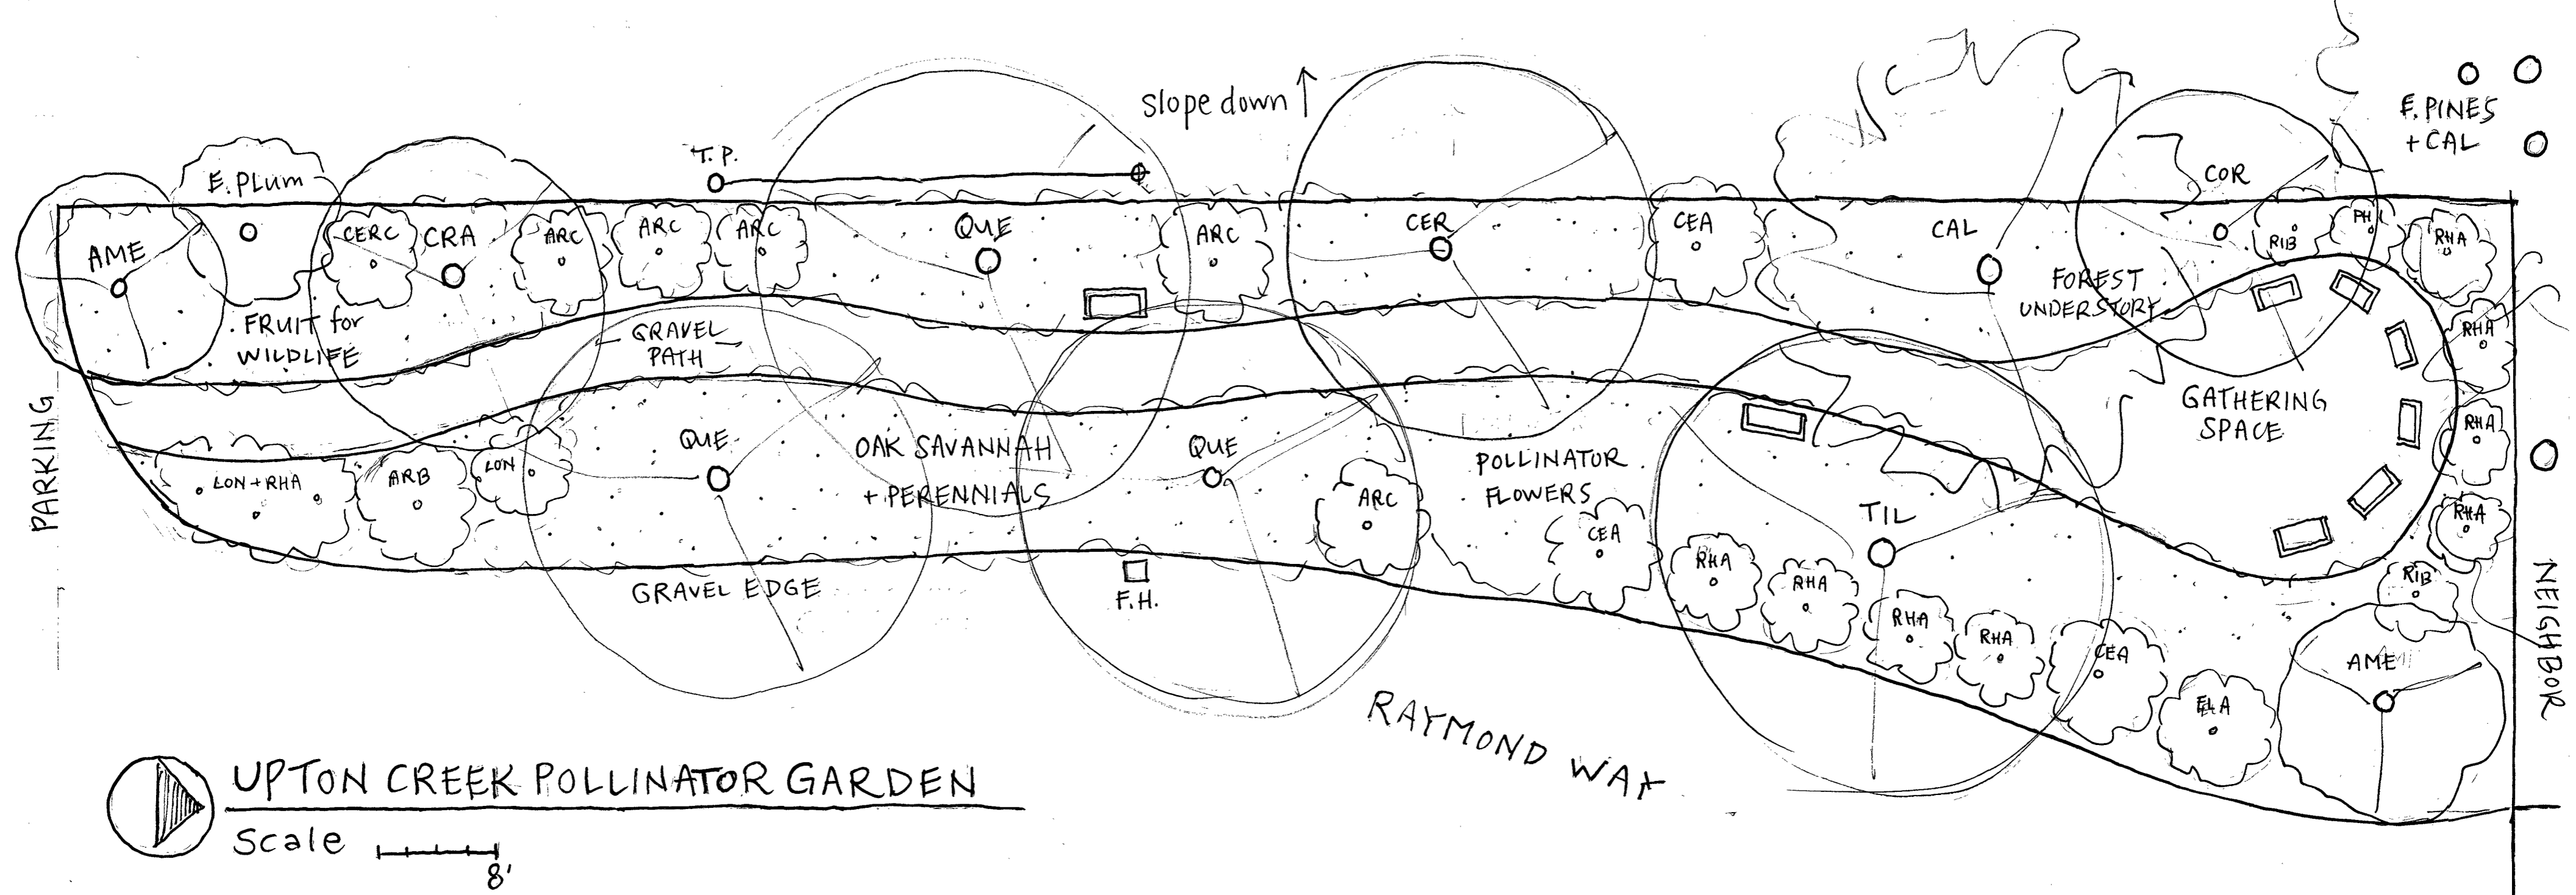 slope down
E. PINES
+ CAL
T.P.
E. PLUM
COR
AME
CERC
CRA
ARC
ARC
ARC
QUE
ARC
CER
CEA
CAL
RIB
PHIL
RHA
FRUIT for
WILDLIFE
GRAVEL
PATH
FOREST
UNDERSTORY
RHA
GATHERING
SPACE
RHA
PARKING
LON + RHA
ARB
LON
QUE
OAK SAVANNAH
+ PERENNIALS
QUE
ARC
POLLINATOR
FLOWERS
CEA
TIL
RHA
RHA
RHA
RHA
RHA
CEA
ELA
RIB
AME
NEIGHBOR
GRAVEL EDGE
F.H.
RAYMOND WAY
UPTON CREEK POLLINATOR GARDEN
Scale
8'